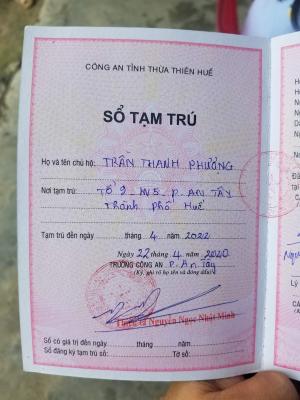 CÔNG AN TỈNH THỪA THIÊN HUẾ
SỔ TẠM TRÚ
Họ và tên chủ hộ: TRẦN THANH PHƯỢNG
Nơi tạm trú: TỔ 9 - KV5 - P. AN TÂY
Thành phố Huế
Tạm trú đến ngày tháng 4 năm 2022
Ngày 22 tháng 4 năm 2020
TRƯỞNG CÔNG AN P. An Tây
(Ký, ghi rõ họ tên và đóng dấu)
Thiếu tá Nguyễn Ngọc Nhật Minh
Sổ có giá trị đến ngày tháng năm
Sổ đăng ký tạm trú số: Tờ số: